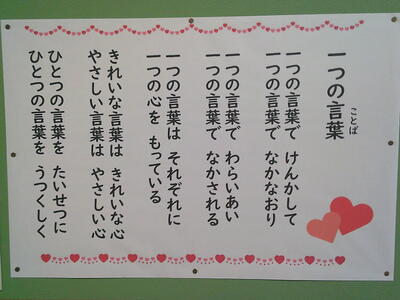 一つの言葉
ことば
一つの言葉で けんかして
一つの言葉で なかなおり
一つの言葉で わらいあい
一つの言葉で なかされる
一つの言葉は それぞれに
一つの心を もっている
きれいな言葉は きれいな心
やさしい言葉は やさしい心
ひとつの言葉を たいせつに
ひとつの言葉を うつくしく